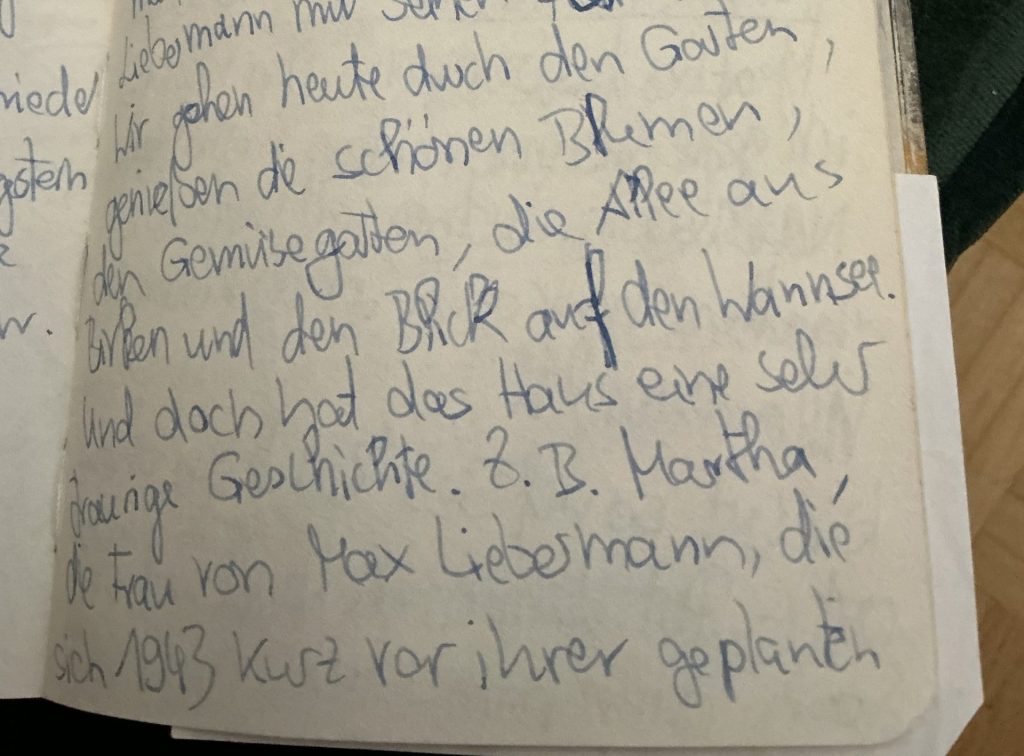 niede
gestern
w.
Liebermann mit seinen
Wir gehen heute durch den Garten,
genießen die schönen Blumen,
den Gemüsegarten, die Allee aus
Birken und den Blick auf den Wannsee.
Und doch hat das Haus eine sehr
traurige Geschichte. Z.B. Martha,
die Frau von Max Liebermann, die
sich 1943 kurz vor ihrer geplanten